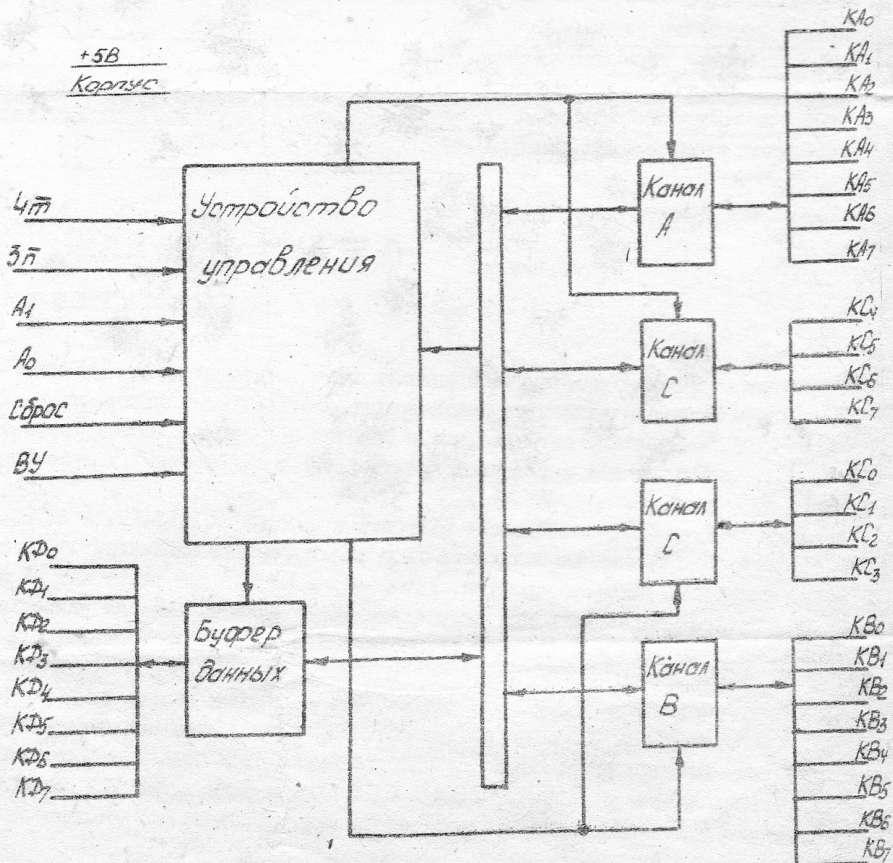 +5В
Корпус
Чт̅
Зп̅
A1
A0
Сброс
ВУ
Устройство
управления
КД0
КД1
КД2
КД3
КД4
КД5
КД6
КД7
Буфер
данных
Канал
А
Канал
С
Канал
С
Канал
В
КА0
КА1
КА2
КА3
КА4
КА5
КА6
КА7
КС4
КС5
КС6
КС7
КС0
КС1
КС2
КС3
КВ0
КВ1
КВ2
КВ3
КВ4
КВ5
КВ6
КВ7